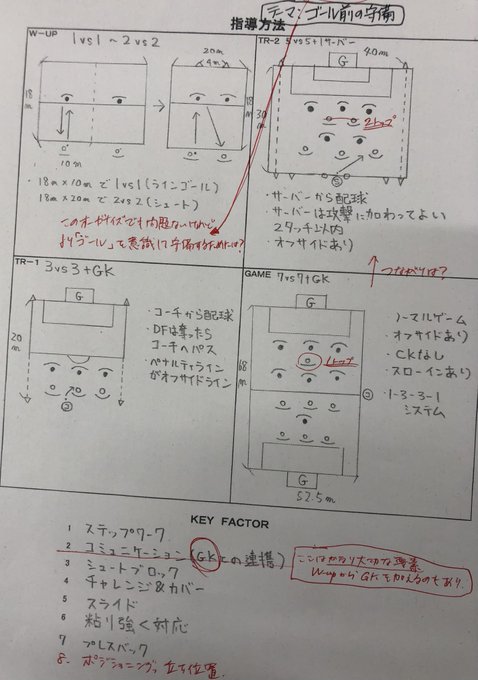 テーマ：ゴール前の守備
指導方法
W-UP 1vs1～2vs2
20m
4m
18m
18m
10m
・18m×10mで1vs1(ラインゴール)
・18m×20mで2vs2(シュート)
このオーガナイズでも問題ないけれど
より「ゴール」を意識して守備するためには？
TR-2 5vs5+1サーバー
40m
G
30m
2トップ
S
・サーバーから配球
・サーバーは攻撃に加わってよい
2タッチ以内
・オフサイドあり
つながりは？
TR-1 3vs3+GK
G
20m
・コーチから配球
・DFは奪ったら
コーチへパス
・ペナルティライン
がオフサイドライン
GAME 7vs7+GK
G
1トップ
68m
G
52.5m
・ノーマルゲーム
・オフサイドあり
・CKなし
・スローインあり
・1-3-3-1
システム
KEY FACTOR
1 ステップワーク
2 コミュニケーション(GKとの連携)
3 シュートブロック
4 チャレンジ&カバー
5 スライド
6 粘り強く対応
7 プレスバック
8. ポジショニング、立ち位置
ここはかなり大切な要素
W-upからGKを加えるのもあり